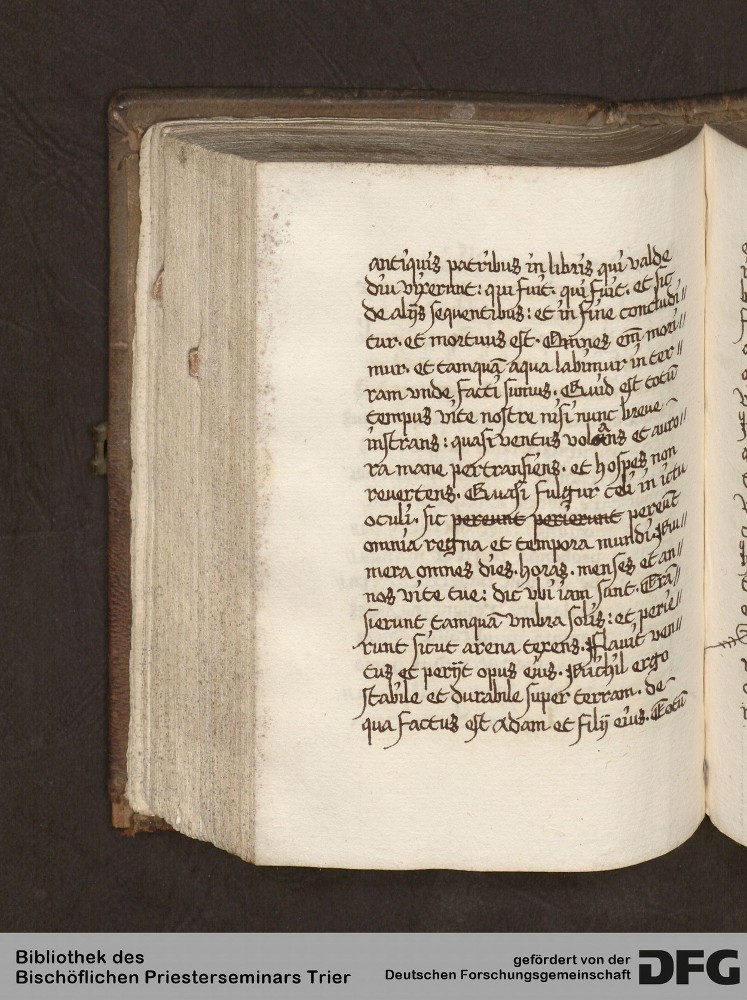 antiquis patribus in libris qui valde
diu vixerunt: qui fuit. qui fuit. et sic
de alijs sequentibus: et in fine concludi//
tur. et mortuus est. Omnes em̄ mori//
mur. et tamquā aqua labimur in ter//
ram vnde facti sumus. Quid est totū
tempus vite nostre nisi nunc breue
instans: quasi ventus volans et auro//
ra mane pertransiens. et hospes non
reuertens. Quasi fulgur celi in ictu
oculi. sic pereunt perierunt pereūt
omnia regna et tempora mundi. Nu//
mera omnes dies. horas. menses et an//
nos vite tue: dic vbi iam sunt. Trā//
sierunt tamquā vmbra solis: et perie//
runt sicut arena texens. Flauit ven//
tus et perijt opus eius. Nichil ergo
stabile et durabile super terram. de
qua factus est Adam et filij eius. Totū
Bibliothek des
Bischöflichen Priesterseminars Trier
gefördert von der
Deutschen Forschungsgemeinschaft
DFG